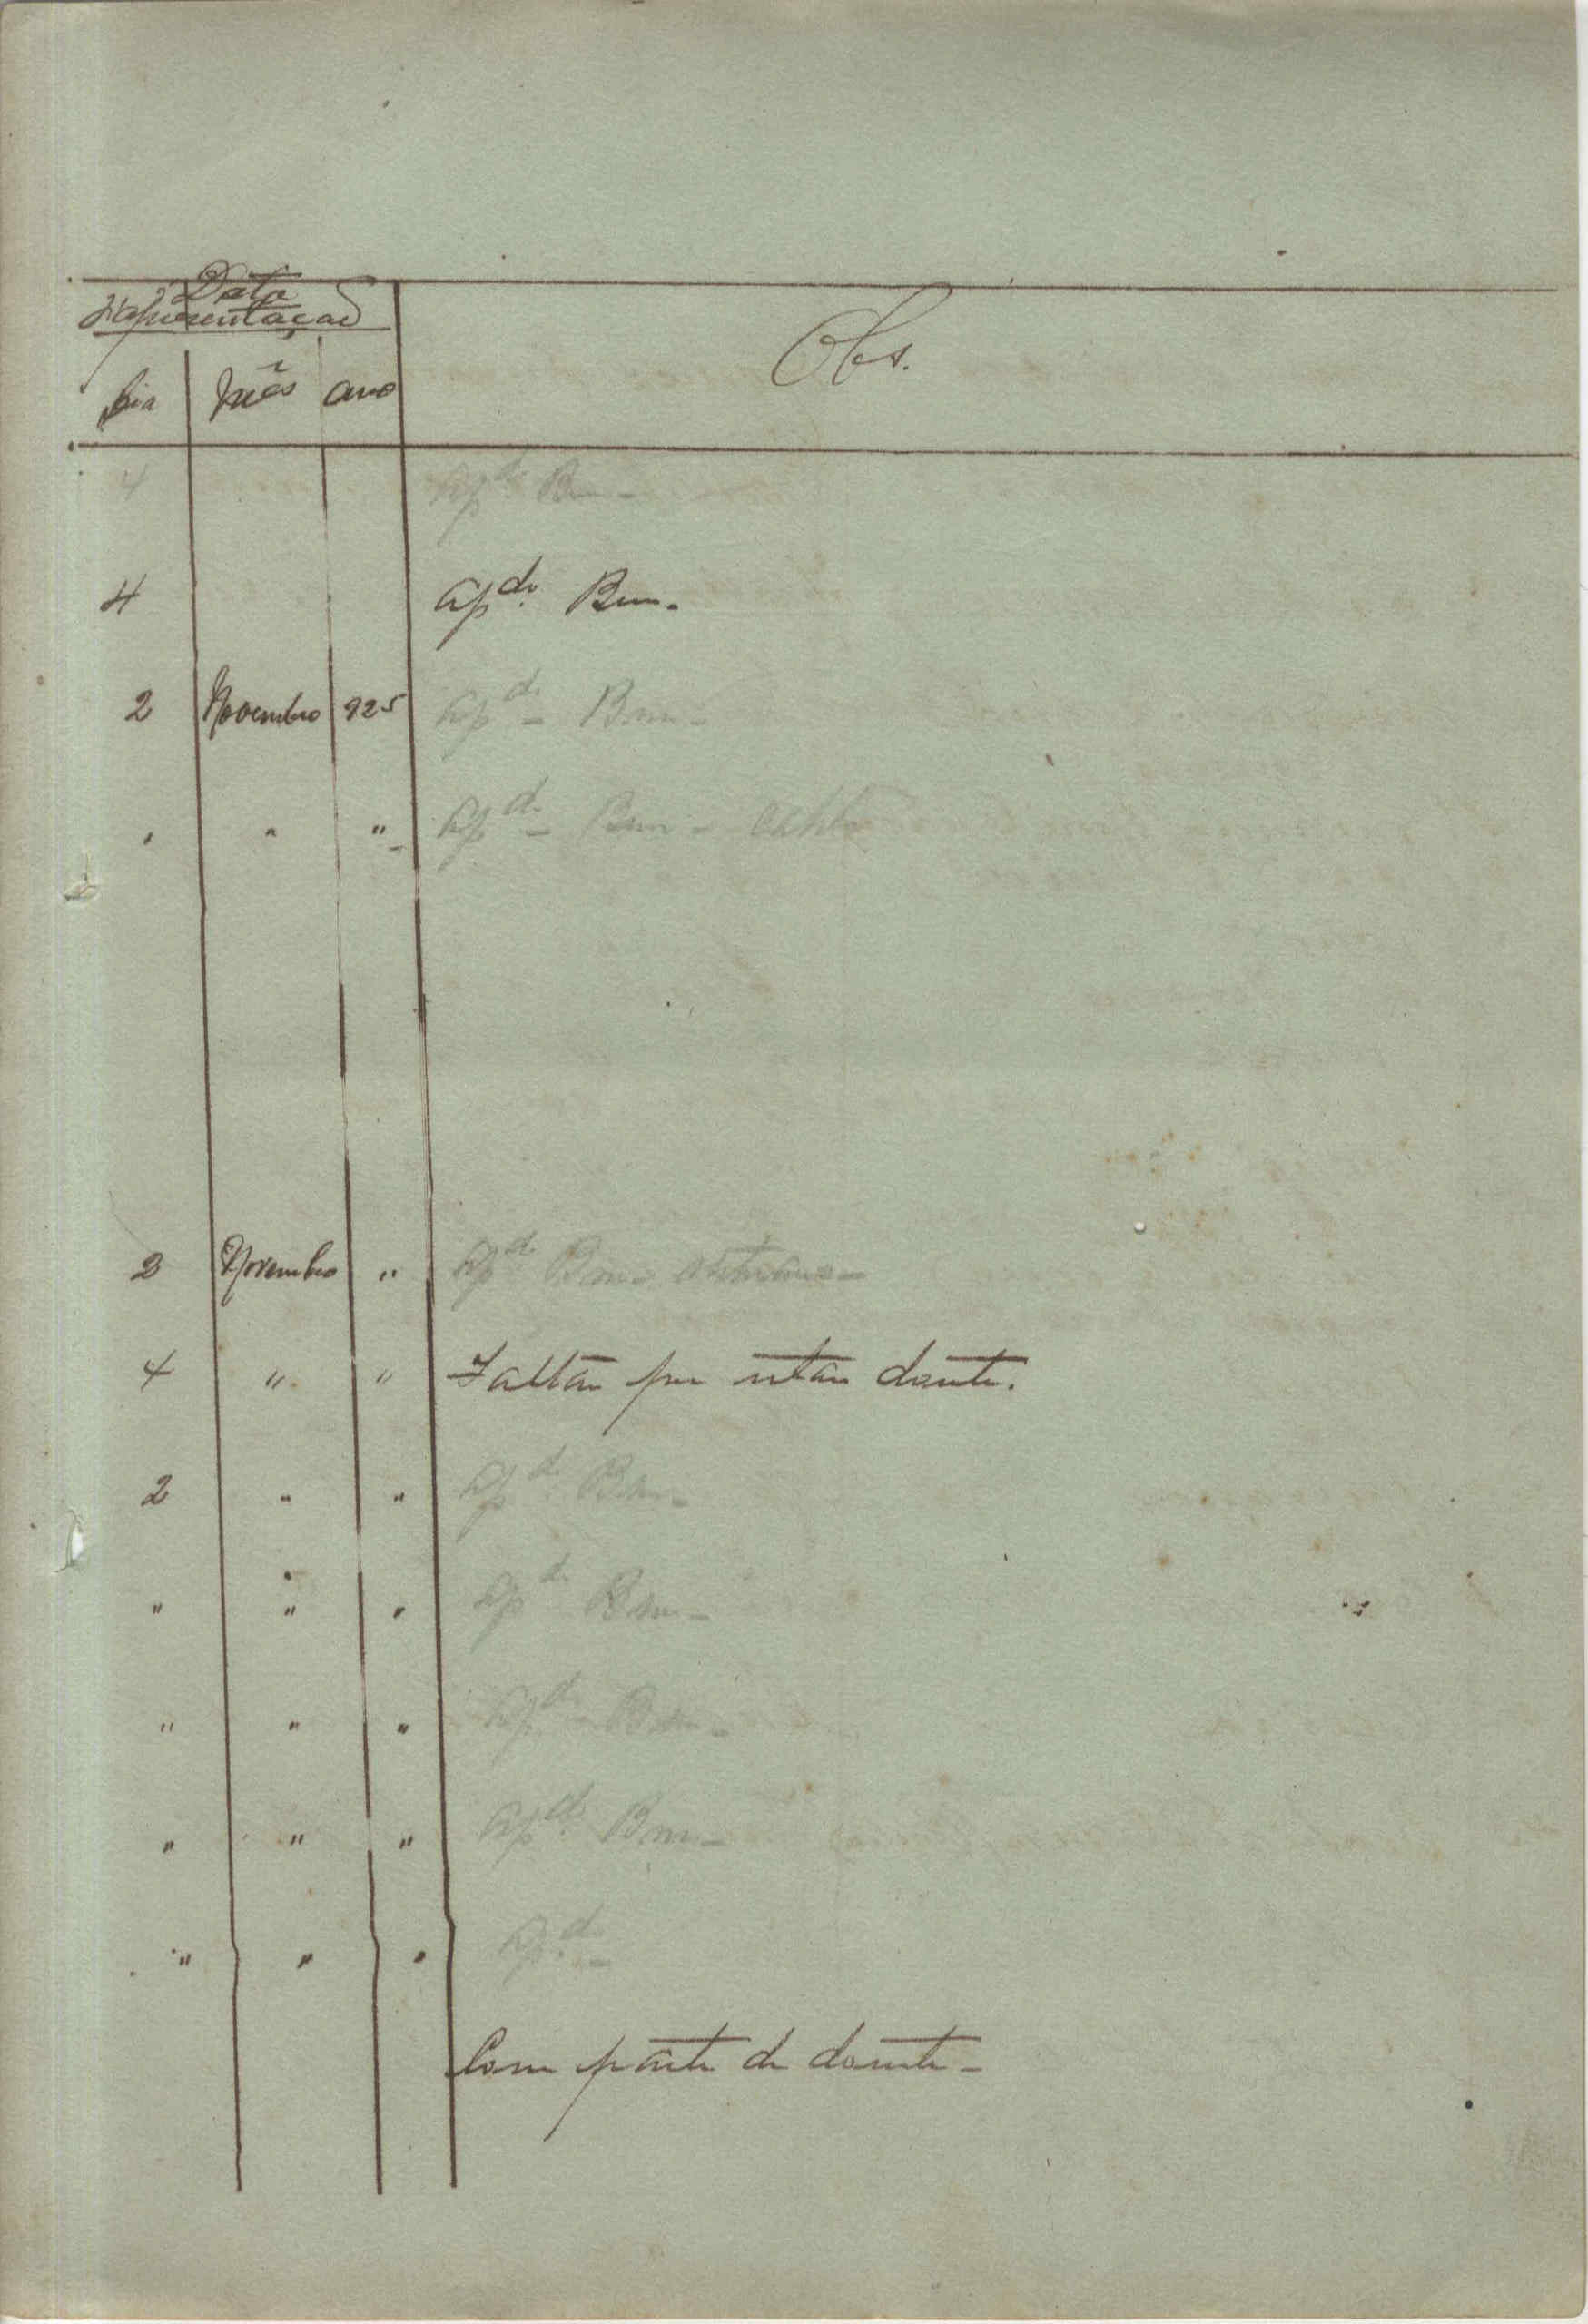 Data
d'apresentação
Dia Mês ano Obs.
4 Ap.do Bom -
4 Ap.do Bom -
2 Novembro 925 Ap.do Bom -
" " " Ap.do Bom -
2 Novembro " Ap.do Bom
4 " " Faltou por estar doente.
2 " " Ap.do Bom -
" " " Ap.do Bom -
" " " Ap.do Bom -
" " " Ap.do Bom -
" " " Ap.do -
Com parte de doente -